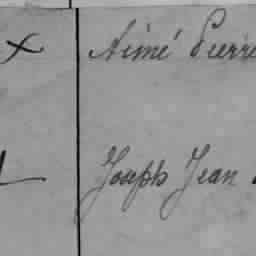 x Aimé Pierre
Joseph Jean